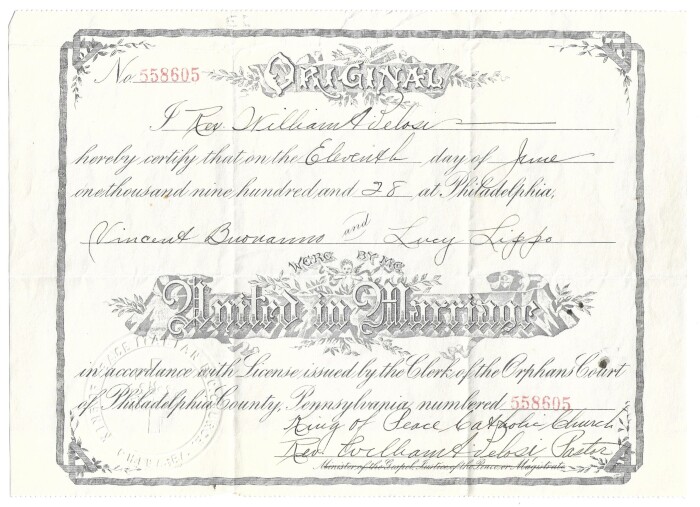 No. 558605 ORIGINAL
I Rev. William A Pelosi
hereby certify that on the Eleventh day of June
one thousand nine hundred and 28 at Philadelphia,
Vincent Buonanno and Lucy Lippo
WERE BY ME
United in Marriage
in accordance with License issued by the Clerk of the Orphans Court
of Philadelphia County, Pennsylvania, numbered 558605
King of Peace Catholic Church
Rev. William A Pelosi Pastor
Minister of the Gospel, Justice of the Peace or Magistrate